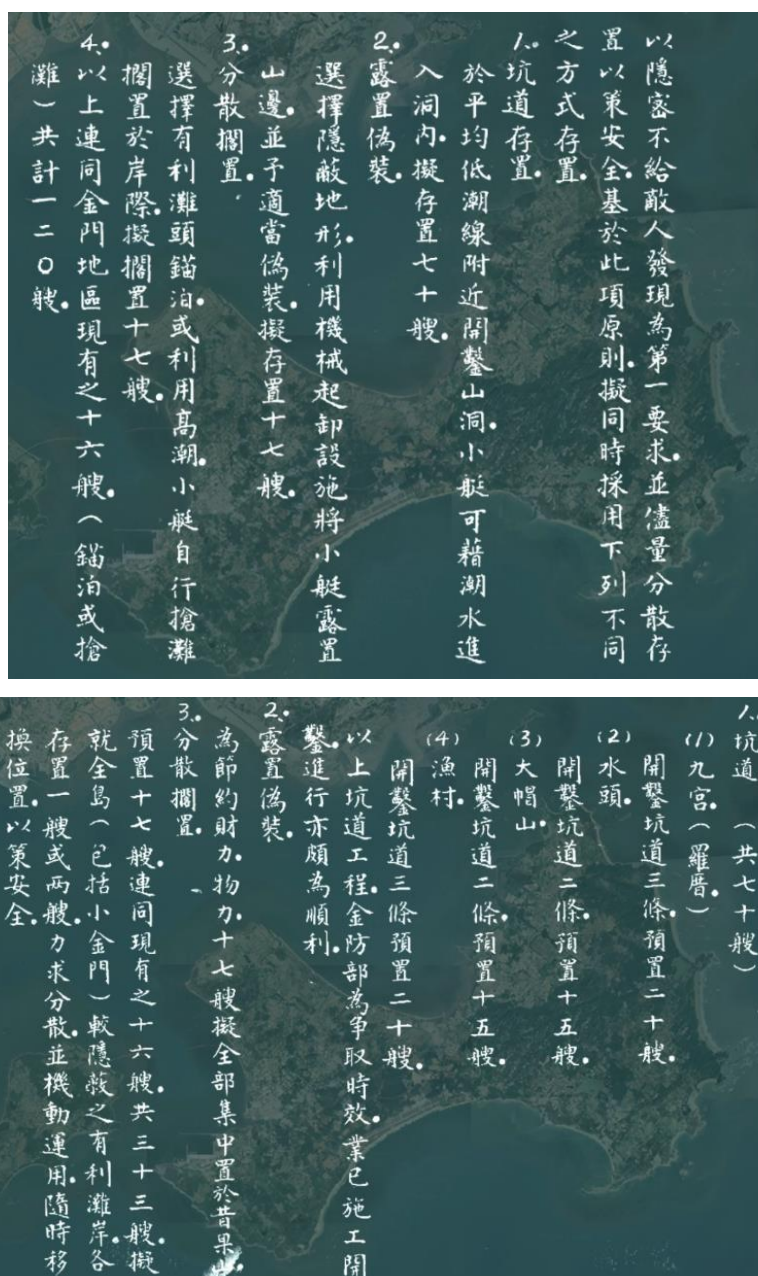 以隱密不給敵人發現為第一要求。並儘量分散存
置以策安全。基於此項原則。擬同時採用下列不同
之方式存置。
1.坑道存置。
於平均低潮線附近開鑿山洞。小艇可藉潮水進
入洞內。擬存置七十艘。
2.露置偽裝。
選擇隱蔽地形。利用機械起卸設施將小艇露置
山邊。並予適當偽裝。擬存置十七艘。
3.分散擱置。
選擇有利灘頭錨泊。或利用高潮。小艇自行搶灘
擱置於岸際。擬擱置十七艘。
4.以上連同金門地區現有之十六艘。（錨泊或搶
灘）共計一二〇艘。
1.坑道（共七十艘）
(1)九宮。（羅厝。）
開鑿坑道三條。預置二十艘。
(2)水頭。
開鑿坑道二條。預置十五艘。
(3)大帽山。
開鑿坑道二條。預置十五艘。
(4)漁村。
開鑿坑道三條預置二十艘。
以上坑道工程。金防部為爭取時效。業已施工開
鑿。進行亦頗為順利。
2.露置偽裝。
為節約財力。物力。十七艘擬全部集中置於昔果山。
3.分散擱置。
預置十七艘。連同現有之十六艘。共三十三艘。擬
就全島（包括小金門）較隱蔽之有利灘岸。各
存置一艘或兩艘。力求分散。並機動運用。隨時移
換位置。以策安全。